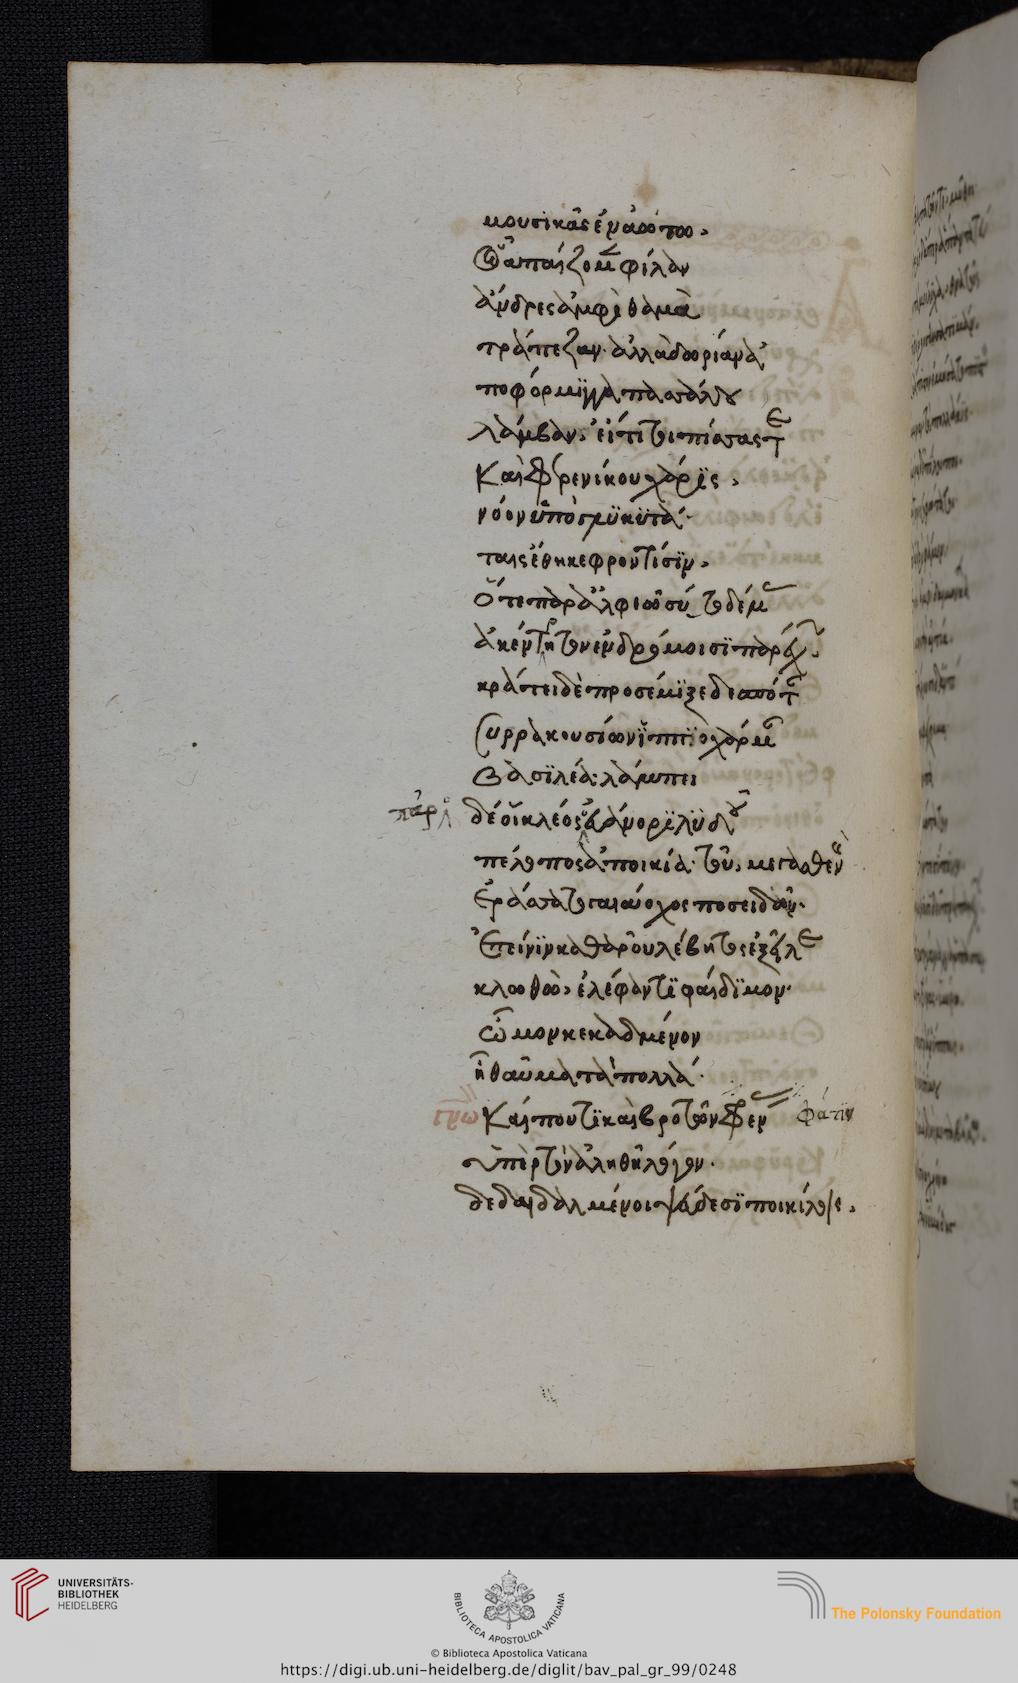 μουσικᾶς ἐν ἀώτω.
Οἷα παίζομεν φίλαν
ἄνδρες ἀμφὶ θαμὰ
τράπεζαν· ἀλλὰ δωρίαν ἀ
πο φόρμιγγα πασσάλου
λάμβαν, εἴ τι τοι πίσας τε
Καὶ φρενίκου χάρις,
νόον ὑπὸ γλυκυτά
ταις ἔθηκε φροντίσιν.
Ὅτε παρ ἀλφιῶ σύτο δέμας
ἀκέντητον ἐν δρόμοισι παρέχων.
κράτει δὲ προσέμιξε δεσπόταν
Συρρακουσίων ἱπποχάρμαν
Βασιλέα· λάμπει
παρ
δέ οἱ κλέος εὐάνορι λυδοῦ
πέλοπος ἀποικία· τοῦ, μεγασθενὴς
Ἐράσσατο γαιάοχος ποσειδᾶν·
Ἐπεί νιν καθαροῦ λέβητος ἔξελε
κλωθὼ, ἐλέφαντι φαίδιμον
ὦμον κεκαδμένον
ἦ θαυματὰ πολλά·
Καί που τι καὶ βροτῶν φρεν φάτιν
ὑπὲρ τὸν ἀληθῆ λόγον·
δεδαιδαλμένοι ψεύδεσι ποικίλοις,
UNIVERSITÄTS-
BIBLIOTHEK
HEIDELBERG
BIBLIOTECA APOSTOLICA VATICANA
The Polonsky Foundation
© Biblioteca Apostolica Vaticana
https://digi.ub.uni-heidelberg.de/diglit/bav_pal_gr_99/0248